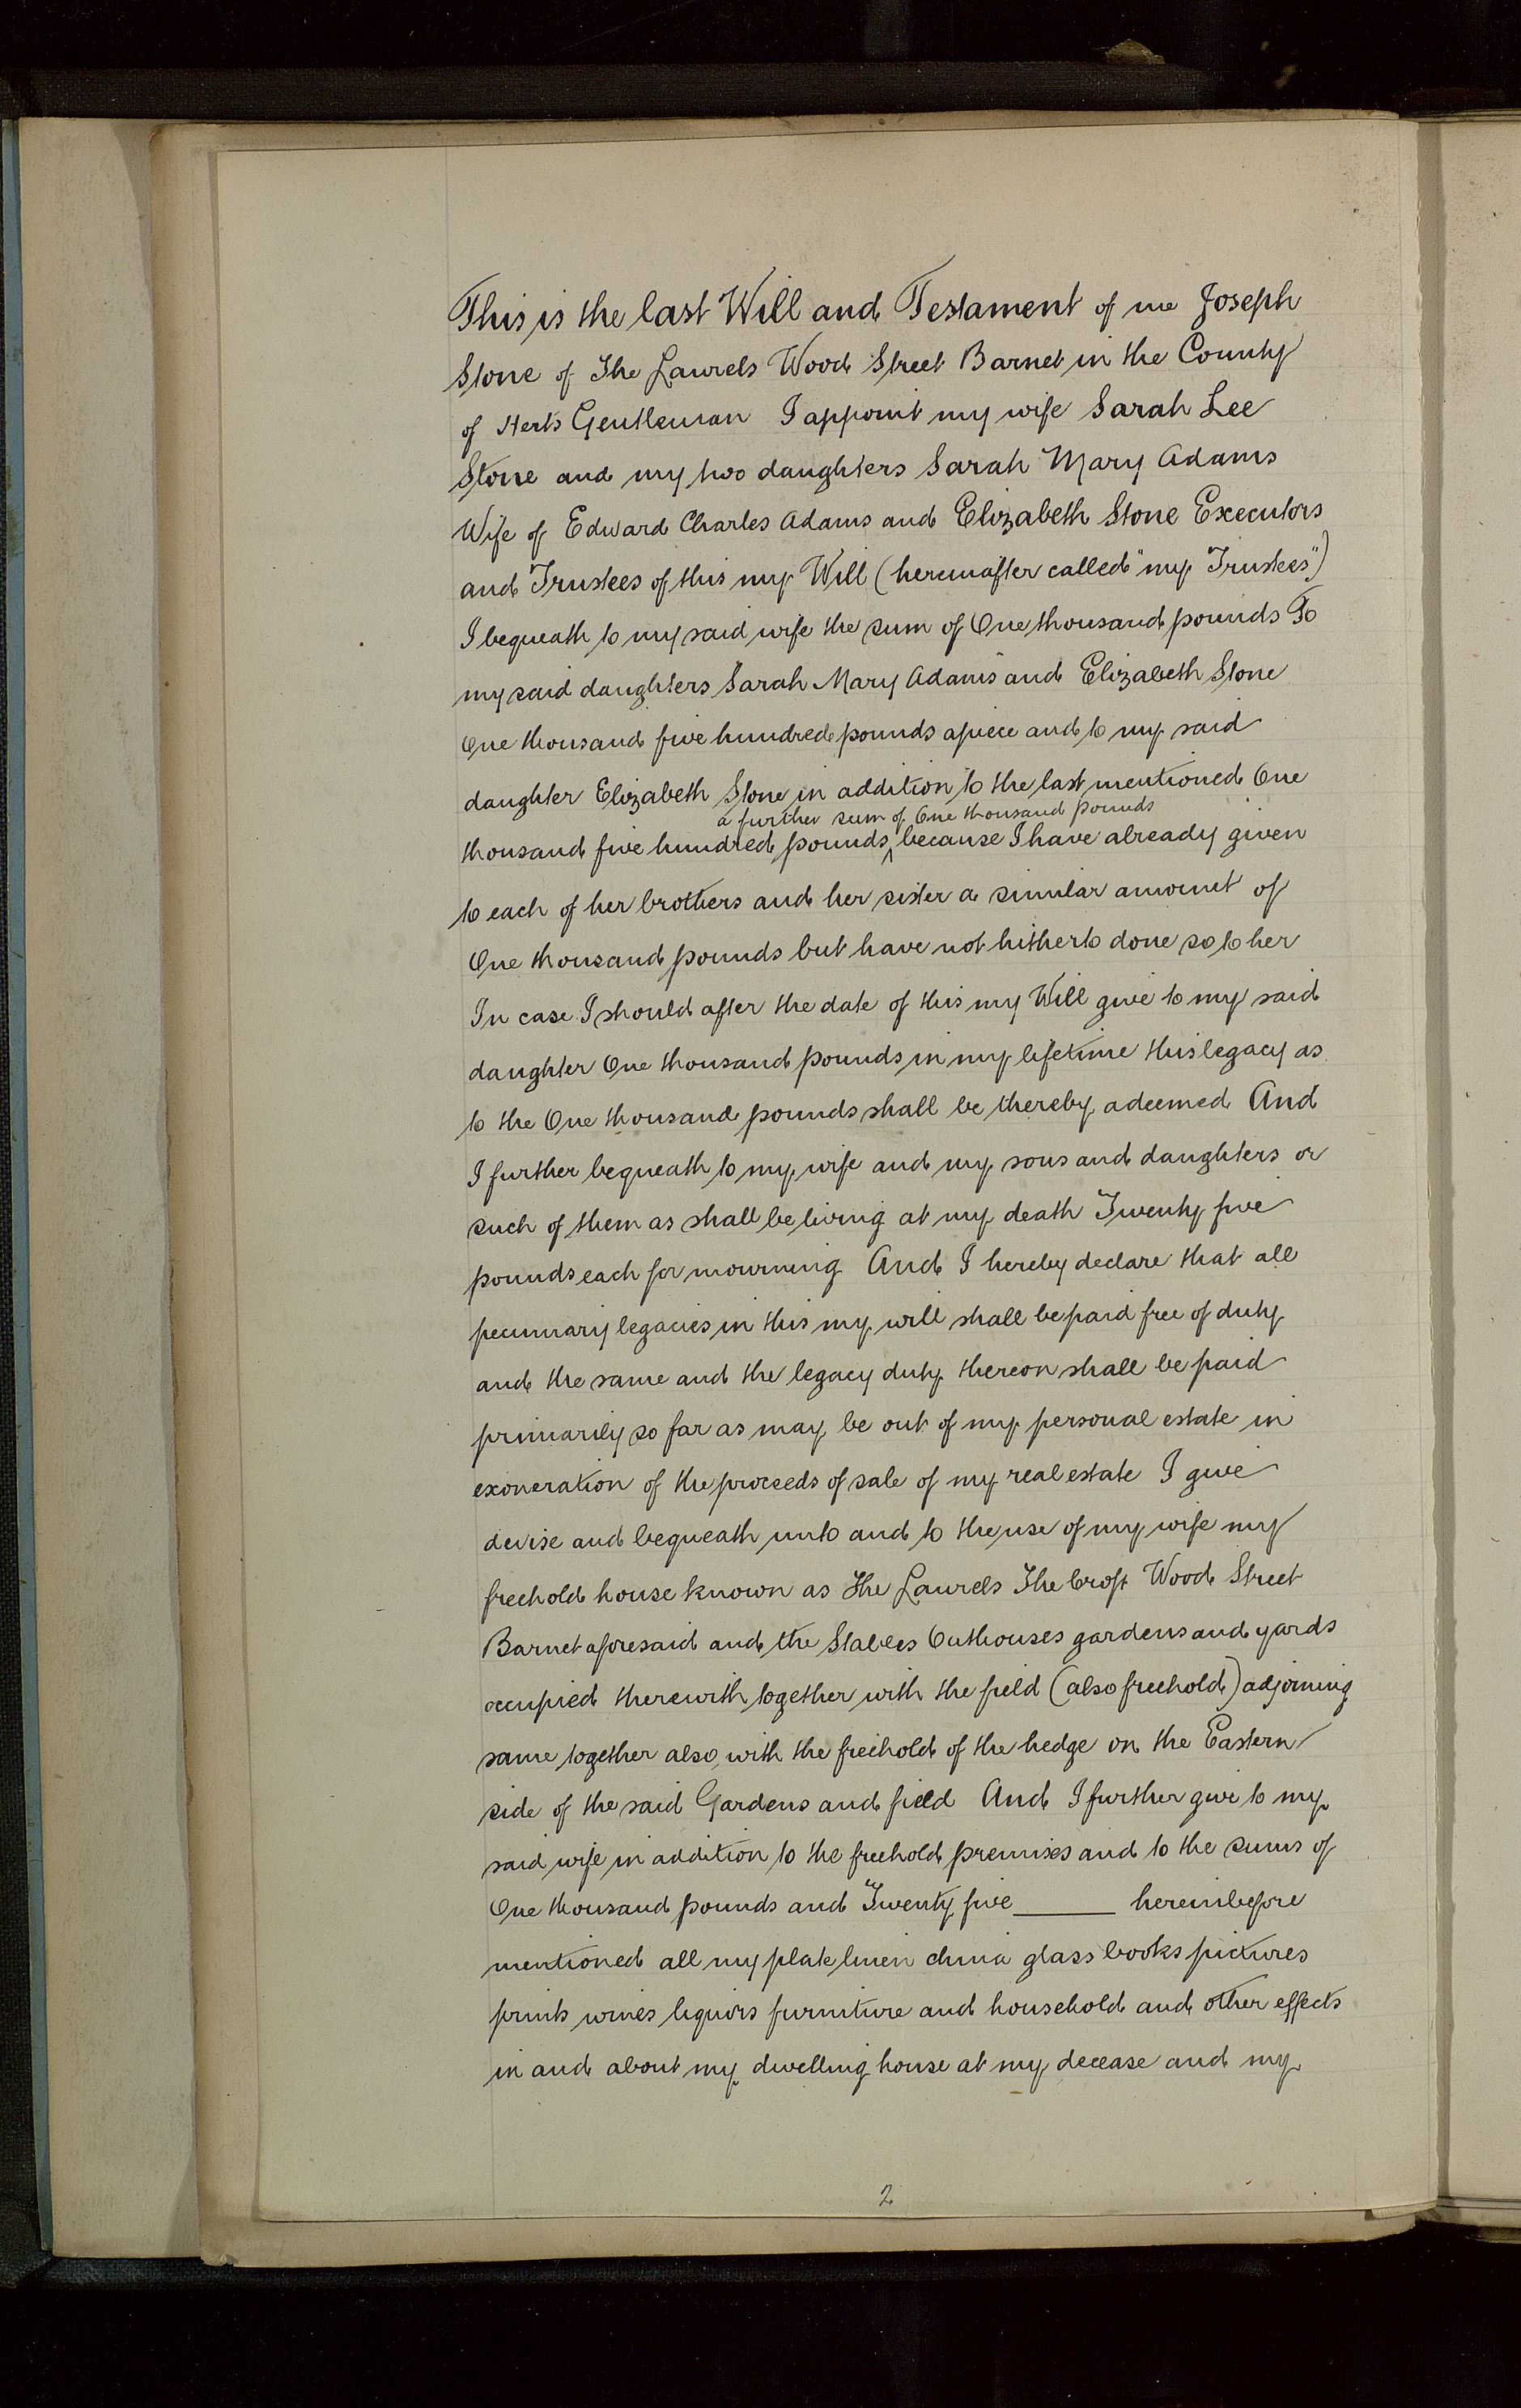 This is the last Will and Testament of me Joseph
Stone of The Laurels Wood Street Barnet in the County
of Herts Gentleman I appoint my wife Sarah Lee
Stone and my two daughters Sarah Mary Adams
Wife of Edward Charles Adams and Elizabeth Stone Executors
and Trustees of this my Will (hereinafter called "my Trustees")
I bequeath to my said wife the sum of One thousand pounds To
my said daughters Sarah Mary Adams and Elizabeth Stone
One thousand five hundred pounds apiece and to my said
daughter Elizabeth Stone in addition to the last mentioned One
a further sum of One thousand pounds
thousand five hundred pounds ^ because I have already given
to each of her brothers and her sister a similar amount of
One thousand pounds but have not hitherto done so to her
In case I should after the date of this my Will give to my said
daughter One thousand pounds in my lifetime this legacy as
to the One thousand pounds shall be thereby adeemed And
I further bequeath to my wife and my sons and daughters or
such of them as shall be living at my death Twenty five
pounds each for mourning And I hereby declare that all
pecuniary legacies in this my will shall be paid free of duty
and the same and the legacy duty thereon shall be paid
primarily so far as may be out of my personal estate in
exoneration of the proceeds of sale of my real estate I give
devise and bequeath unto and to the use of my wife my
freehold house known as The Laurels The Croft Wood Street
Barnet aforesaid and the Stables Outhouses gardens and yards
occupied therewith together with the field (also freehold) adjoining
same together also with the freehold of the hedge on the Eastern
side of the said Gardens and field And I further give to my
said wife in addition to the freehold premises and to the sums of
One thousand pounds and Twenty five ______ hereinbefore
mentioned all my plate linen china glass books pictures
prints wines liquors furniture and household and other effects
in and about my dwelling house at my decease and my
2